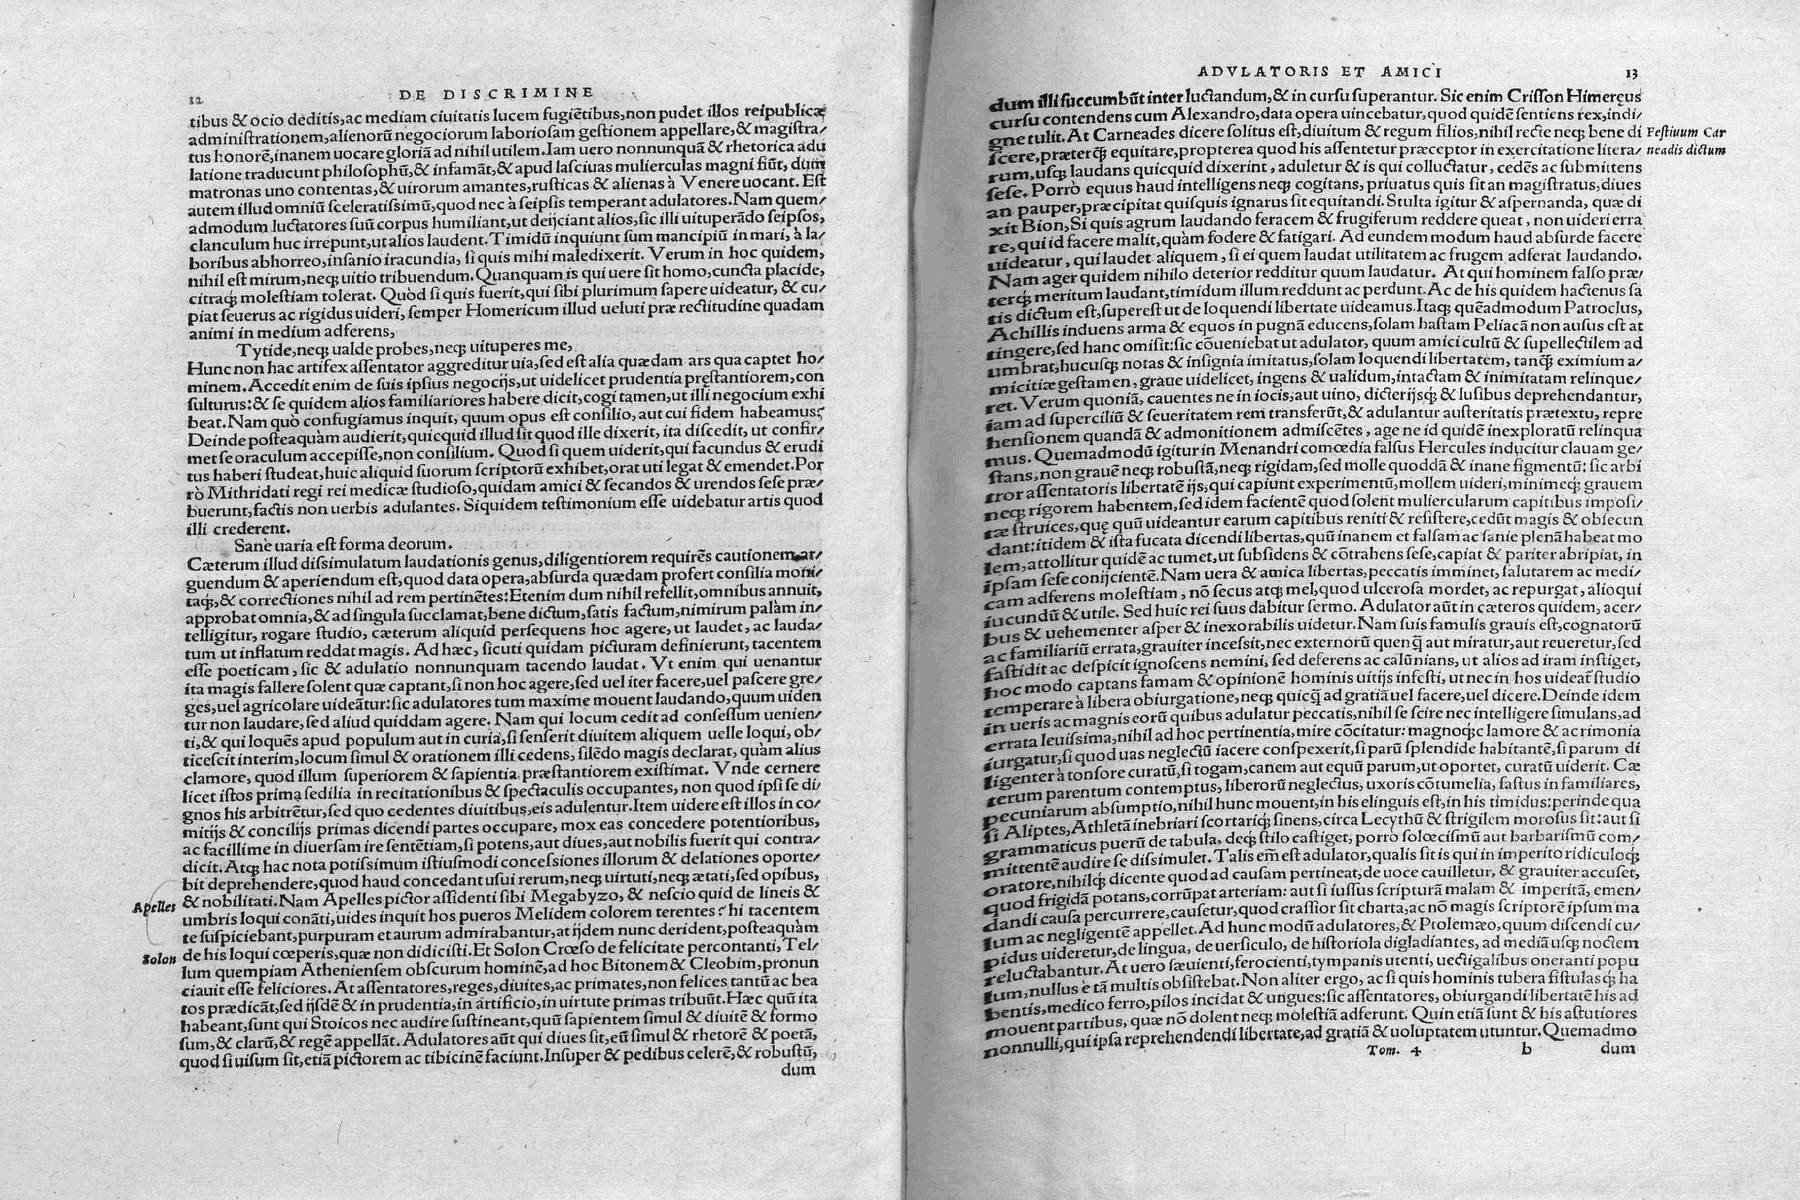 12
DE DISCRIMINE
tibus & ocio deditis, ac mediam ciuitatis lucem fugiẽtibus, non pudet illos reipublicæ
administrationem, alienorũ negociorum laboriosam gestionem appellare, & magistra/
tus honorẽ, inanem uocare gloriã ad nihil utilem. Iam uero nonnunquã & rhetorica adu
latione traducunt philosophũ, & infamãt, & apud lasciuas mulierculas magni fiũt, dum
matronas uno contentas, & uirorum amantes, rusticas & alienas à Venere uocant. Est
autem illud omniũ sceleratissimũ, quod nec à seipsis temperant adulatores. Nam quem/
admodum luctatores suũ corpus humiliant, ut deijciant alios, sic illi uituperãdo seipsos,
clanculum huc irrepunt, ut alios laudent. Timidũ inquiunt sum mancipiũ in mari, à la/
boribus abhorreo, insanio iracundia, si quis mihi maledixerit. Verum in hoc quidem,
nihil est mirum, neq; uitio tribuendum. Quanquam is qui uere sit homo, cuncta placide,
citraq; molestiam tolerat. Quòd si quis fuerit, qui sibi plurimum sapere uideatur, & cu/
piat seuerus ac rigidus uideri, semper Homericum illud ueluti præ rectitudine quadam
animi in medium adferens,
Tytide, neq; ualde probes, neq; uituperes me,
Hunc non hac artifex assentator aggreditur uia, sed est alia quædam ars qua captet ho/
minem. Accedit enim de suis ipsius negocijs, ut uidelicet prudentia pręstantiorem, con
sulturus: & se quidem alios familiariores habere dicit, cogi tamen, ut illi negocium exhi
beat. Nam quò confugiamus inquit, quum opus est consilio, aut cui fidem habeamus?
Deinde posteaquàm audierit, quicquid illud sit quod ille dixerit, ita discedit, ut confir/
met se oraculum accepisse, non consilium. Quod si quem uiderit, qui facundus & erudi
tus haberi studeat, huic aliquid suorum scriptorũ exhibet, orat uti legat & emendet. Por
rò Mithridati regi rei medicæ studioso, quidam amici & secandos & urendos sese præ/
buerunt, factis non uerbis adulantes. Siquidem testimonium esse uidebatur artis quod
illi crederent.
Sanè uaria est forma deorum.
Cæterum illud dissimulatum laudationis genus, diligentiorem requirẽs cautionem, ar/
guendum & aperiendum est, quod data opera, absurda quædam profert consilia moni/
taq;, & correctiones nihil ad rem pertinẽtes: Etenim dum nihil refellit, omnibus annuit,
approbat omnia, & ad singula succlamat, bene dictum, satis factum, nimirum palàm in/
telligitur, rogare studio, cæterum aliquid persequens hoc agere, ut laudet, ac lauda/
tum ut inflatum reddat magis. Ad hæc, sicuti quidam picturam definierunt, tacentem
esse poeticam, sic & adulatio nonnunquam tacendo laudat. Vt enim qui uenantur
ita magis fallere solent quæ captant, si non hoc agere, sed uel iter facere, uel pascere gre/
ges, uel agricolare uideãtur: sic adulatores tum maxime mouent laudando, quum uiden
tur non laudare, sed aliud quiddam agere. Nam qui locum cedit ad consessum uenien/
ti, & qui loquẽs apud populum aut in curia, si senserit diuitem aliquem uelle loqui, ob/
ticescit interim, locum simul & orationem illi cedens, silẽdo magis declarat, quàm alius
clamore, quod illum superiorem & sapientia præstantiorem existimat. Vnde cernere
licet istos prima sedilia in recitationibus & spectaculis occupantes, non quod ipsi se di/
gnos his arbitrẽtur, sed quo cedentes diuitibus, eis adulentur. Item uidere est illos in co/
mitijs & concilijs primas dicendi partes occupare, mox eas concedere potentioribus,
ac facillime in diuersam ire sentẽtiam, si potens, aut diues, aut nobilis fuerit qui contra/
dicit. Atq; hac nota potissimum istiusmodi concessiones illorum & delationes oporte/
bit deprehendere, quod haud concedant usui rerum, neq; uirtuti, neq; ætati, sed opibus,
& nobilitati. Nam Apelles pictor assidenti sibi Megabyzo, & nescio quid de lineis &
Apelles
umbris loqui conãti, uides inquit hos pueros Melidem colorem terentes? hi tacentem
te suspiciebant, purpuram et aurum admirabantur, at ijdem nunc derident, posteaquàm
de his loqui cœperis, quæ non didicisti. Et Solon Crœso de felicitate percontanti, Tel/
Solon
lum quempiam Atheniensem obscurum hominẽ, ad hoc Bitonem & Cleobim, pronun
ciauit esse feliciores. At assentatores, reges, diuites, ac primates, non felices tantũ ac bea
tos prædicãt, sed ijsdẽ & in prudentia, in artificio, in uirtute primas tribuũt. Hæc quũ ita
habeant, sunt qui Stoicos nec audire sustineant, quũ sapientem simul & diuitẽ & formo
sum, & clarũ, & regẽ appellãt. Adulatores aũt qui diues sit, eũ simul & rhetorẽ & poetã,
quod si uisum sit, etiã pictorem ac tibicinẽ faciunt. Insuper & pedibus celerẽ, & robustũ,
dum
ADVLATORIS ET AMICI
13
dum illi succumbũt inter luctandum, & in cursu superantur. Sic enim Crisson Himeręus
cursu contendens cum Alexandro, data opera uincebatur, quod quidẽ sentiens rex, indi/
gne tulit. At Carneades dicere solitus est, diuitum & regum filios, nihil recte neq; bene di
Festiuum Car
scere, præterq̃ equitare, propterea quod his assentetur præceptor in exercitatione litera/
neadis dictum
rum, usq; laudans quicquid dixerint, aduletur & is qui colluctatur, cedẽs ac submittens
sese. Porrò equus haud intelligens neq; cogitans, priuatus quis sit an magistratus, diues
an pauper, præcipitat quisquis ignarus sit equitandi. Stulta igitur & aspernanda, quæ di
xit Bion, Si quis agrum laudando feracem & frugiferum reddere queat, non uideri erra
re, qui id facere malit, quàm fodere & fatigari. Ad eundem modum haud absurde facere
uideatur, qui laudet aliquem, si ei quem laudat utilitatem ac frugem adferat laudando.
Nam ager quidem nihilo deterior redditur quum laudatur. At qui hominem falso præ/
terq; meritum laudant, timidum illum reddunt ac perdunt. Ac de his quidem hactenus sa
tis dictum est, superest ut de loquendi libertate uideamus. Itaq; quẽadmodum Patroclus,
Achillis induens arma & equos in pugnã educens, solam hastam Peliacã non ausus est at
tingere, sed hanc omisit: sic cõueniebat ut adulator, quum amici cultũ & supellectilem ad
umbrat, hucusq; notas & insignia imitatus, solam loquendi libertatem, tanq̃ eximium a/
micitiæ gestamen, graue uidelicet, ingens & ualidum, intactam & inimitatam relinque/
ret. Verum quoniã, cauentes ne in iocis, aut uino, dicterijsq; & lusibus deprehendantur,
iam ad superciliũ & seueritatem rem transferũt, & adulantur austeritatis prætextu, repre
hensionem quandã & admonitionem admiscẽtes, age ne id quidẽ inexploratũ relinqua
mus. Quemadmodũ igitur in Menandri comœdia falsus Hercules inducitur clauam ge/
stans, non grauẽ neq; robustã, neq; rigidam, sed molle quoddã & inane figmentũ: sic arbi
tror assentatoris libertatẽ ijs, qui capiunt experimentũ, mollem uideri, minimeq; grauem
neq; rigorem habentem, sed idem facientẽ quod solent muliercularum capitibus imposi/
tæ struices, quę quũ uideantur earum capitibus reniti & resistere, cedũt magis & obsecun
dant: itidem & ista fucata dicendi libertas, quũ inanem et falsam ac sanie plenã habeat mo
lem, attollitur quidẽ ac tumet, ut subsidens & cõtrahens sese, capiat & pariter abripiat, in
ipsam sese conijcientẽ. Nam uera & amica libertas, peccatis imminet, salutarem ac medi/
cam adferens molestiam, nõ secus atq; mel, quod ulcerosa mordet, ac repurgat, alioqui
iucundũ & utile. Sed huic rei suus dabitur sermo. Adulator aũt in cæteros quidem, acer/
bus & uehementer asper & inexorabilis uidetur. Nam suis famulis grauis est, cognatorũ
ac familiariũ errata, grauiter incessit, nec externorũ quenq̃ aut miratur, aut reueretur, sed
fastidit ac despicit ignoscens nemini, sed deferens ac calũnians, ut alios ad iram instiget,
hoc modo captans famam & opinionẽ hominis uitijs infesti, ut nec in hos uideat̃ studio
temperare à libera obiurgatione, neq; quicq̃ ad gratiã uel facere, uel dicere. Deinde idem
in ueris ac magnis eorũ quibus adulatur peccatis, nihil se scire nec intelligere simulans, ad
errata leuissima, nihil ad hoc pertinentia, mire cõcitatur: magnoq; clamore & acrimonia
iurgatur, si quod uas neglectũ iacere conspexerit, si parũ splendide habitantẽ, si parum di
ligenter à tonsore curatũ, si togam, canem aut equũ parum, ut oportet, curatũ uiderit. Cæ
terum parentum contemptus, liberorũ neglectus, uxoris cõtumelia, fastus in familiares,
pecuniarum absumptio, nihil hunc mouent, in his elinguis est, in his timidus: perinde qua
si Aliptes, Athletã inebriari scortariq; sinens, circa Lecythũ & strigilem morosus sit: aut si
grammaticus puerũ de tabula, deq; stilo castiget, porrò solœcismũ aut barbarismũ com/
mittentẽ audire se dissimulet. Talis em̃ est adulator, qualis sit is qui in imperito ridiculoq;
oratore, nihilq; dicente quod ad causam pertineat, de uoce cauilletur, & grauiter accuset,
quod frigidã potans, corrũpat arteriam: aut si iussus scripturã malam & imperitã, emen/
dandi causa percurrere, causetur, quod crassior sit charta, ac nõ magis scriptorẽ ipsum ma
lum ac negligentẽ appellet. Ad hunc modũ adulatores, & Ptolemæo, quum discendi cu/
pidus uideretur, de lingua, de uersiculo, de historiola digladiantes, ad mediã usq; noctem
reluctabantur. At uero sæuienti, ferocienti, tympanis utenti, uectigalibus oneranti popu
lum, nullus è tã multis obsistebat. Non aliter ergo, ac si quis hominis tubera fistulasq; ha
bentis, medico ferro, pilos incidat & ungues: sic assentatores, obiurgandi libertatẽ his ad
mouent partibus, quæ nõ dolent neq; molestiã adferunt. Quin etiã sunt & his astutiores
nonnulli, qui ipsa reprehendendi libertate, ad gratiã & uoluptatem utuntur. Quemadmo
Tom. 4 b dum